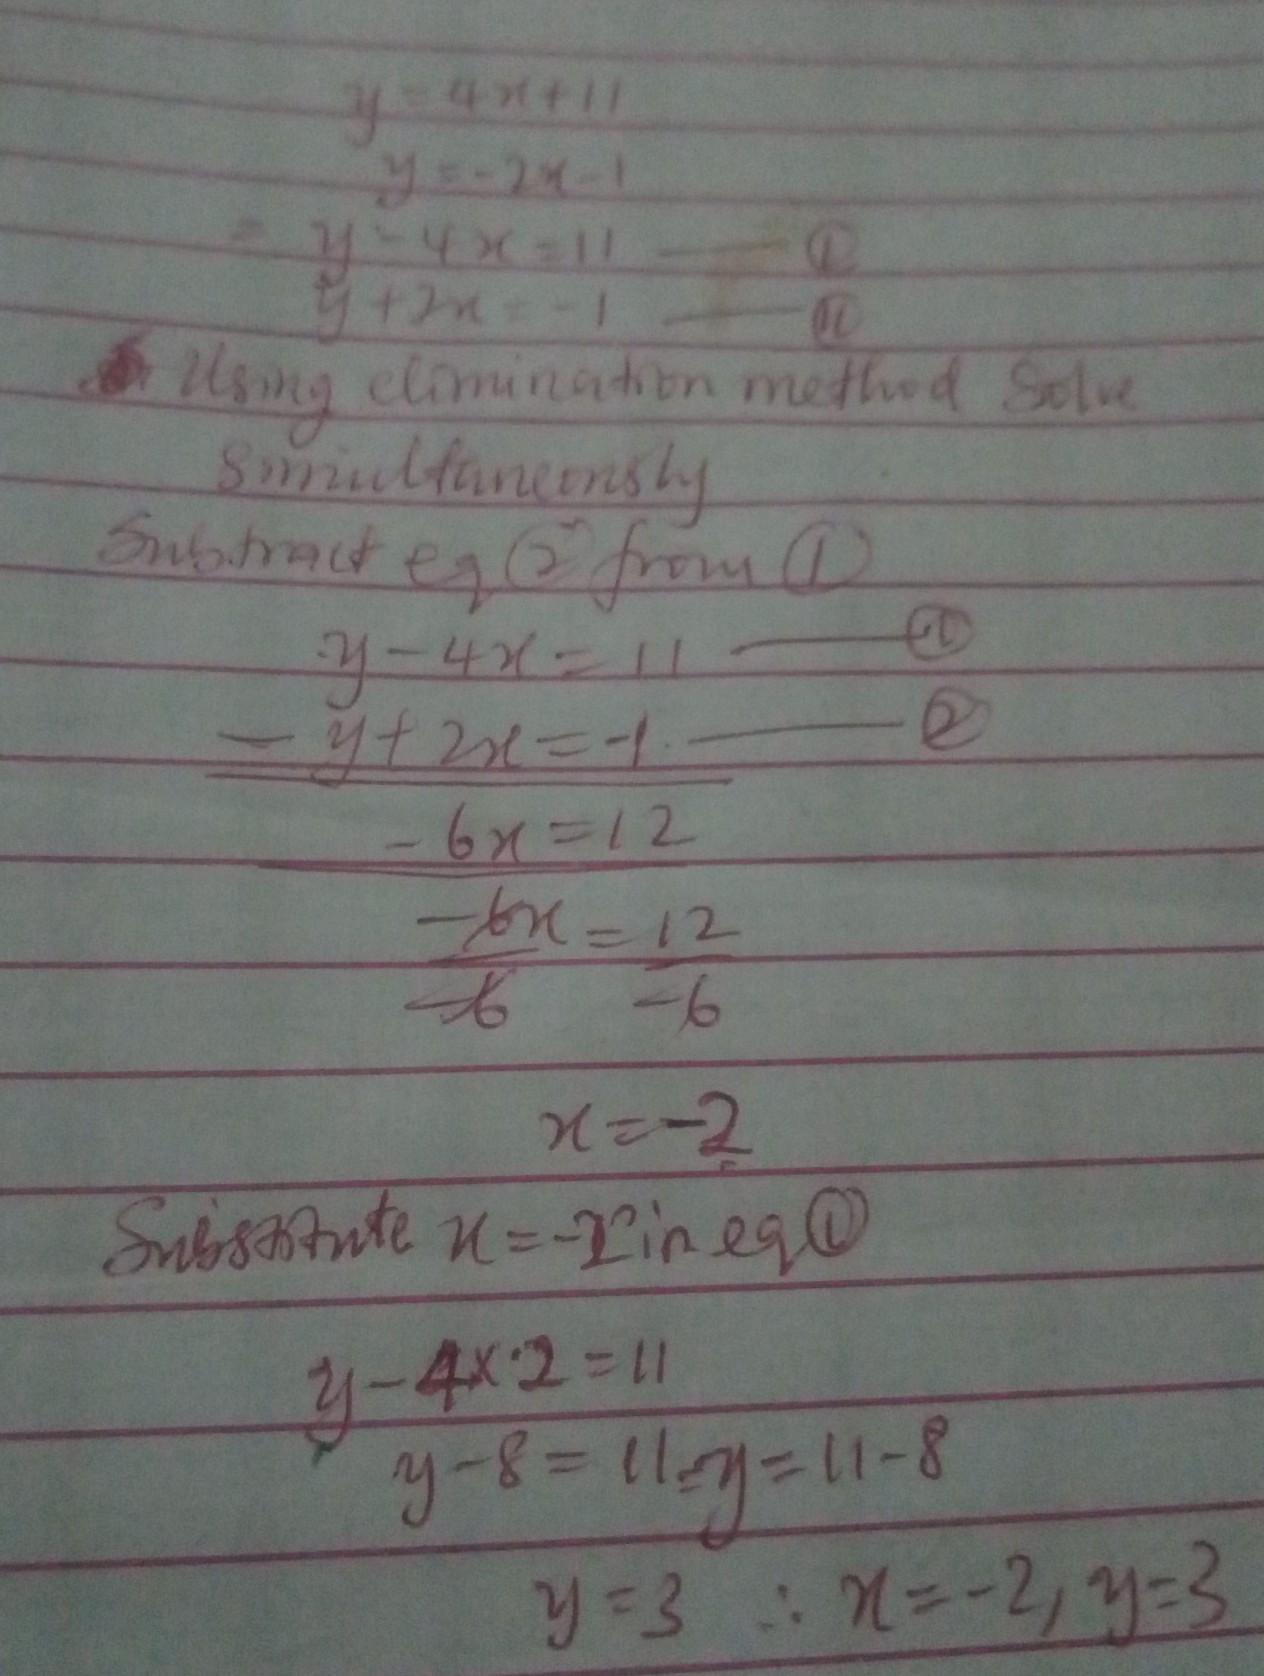 y = 4x + 11
y = -2x - 1
= y - 4x = 11 —— ①
y + 2x = -1 —— ⑪
Using elimination method Solve
Simultaneously
Subtract eq ② from ①
y - 4x = 11 —— ①
- y + 2x = -1. —— ②
- 6x = 12
-6x = 12
-6 -6
x = -2
Substitute x = -2 in eq ①
y - 4 x -2 = 11
y - 8 = 11 = y = 11 - 8
y = 3 ∴ x = -2, y = 3